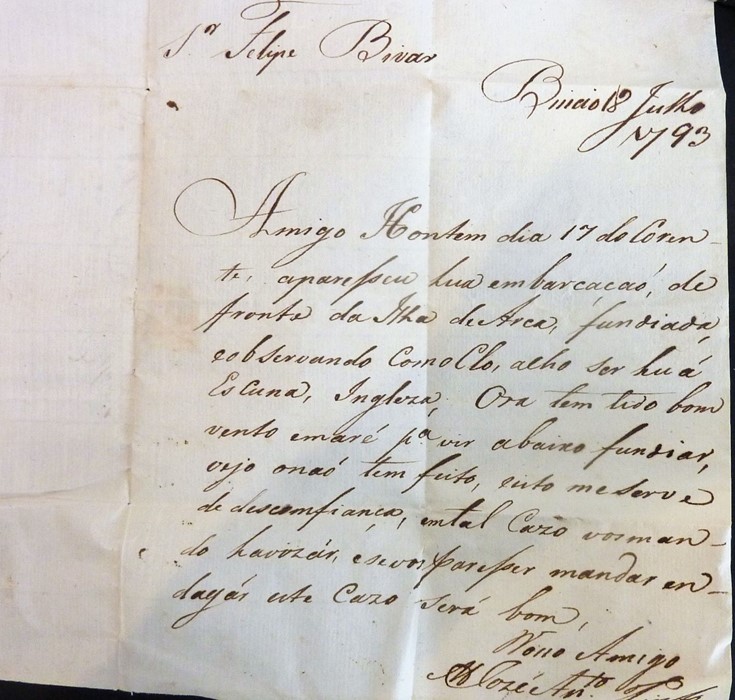 Sr. Felipe Bivar
18 Julho
1793
Amigo Hontem dia 17 do Coren-
te, aparesseu hua embarcacaó, de
fronte da Ilha de Arca, fundiada,
e observando Com o Clo, acho ser huá
Escuna, Ingleza, Ora tem tido bom
vento e maré pa. vir abaixo fundiar,
vejo o naó tem feito, e isto me serve
de descomfiança, em tal Cazo vos man-
do havozár, e se vos paresser mandar en-
dagár este Cazo Será bom,
Vosso Amigo
Jozé Anto.